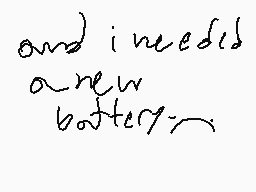 and i needed
a new
battery